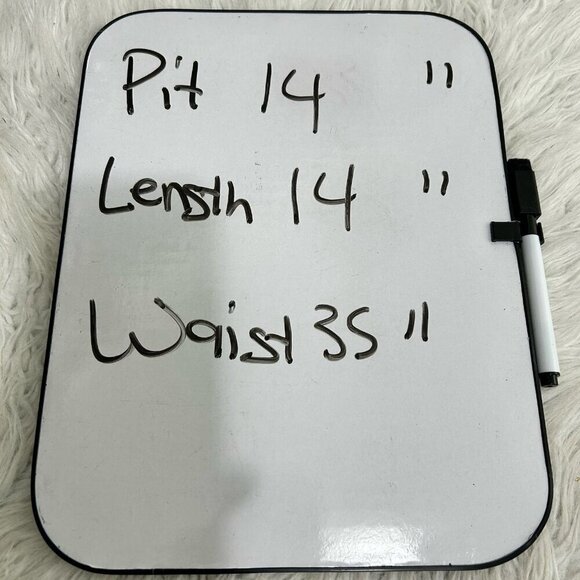 Pit 14 "
Length 14 "
Waist 35 "